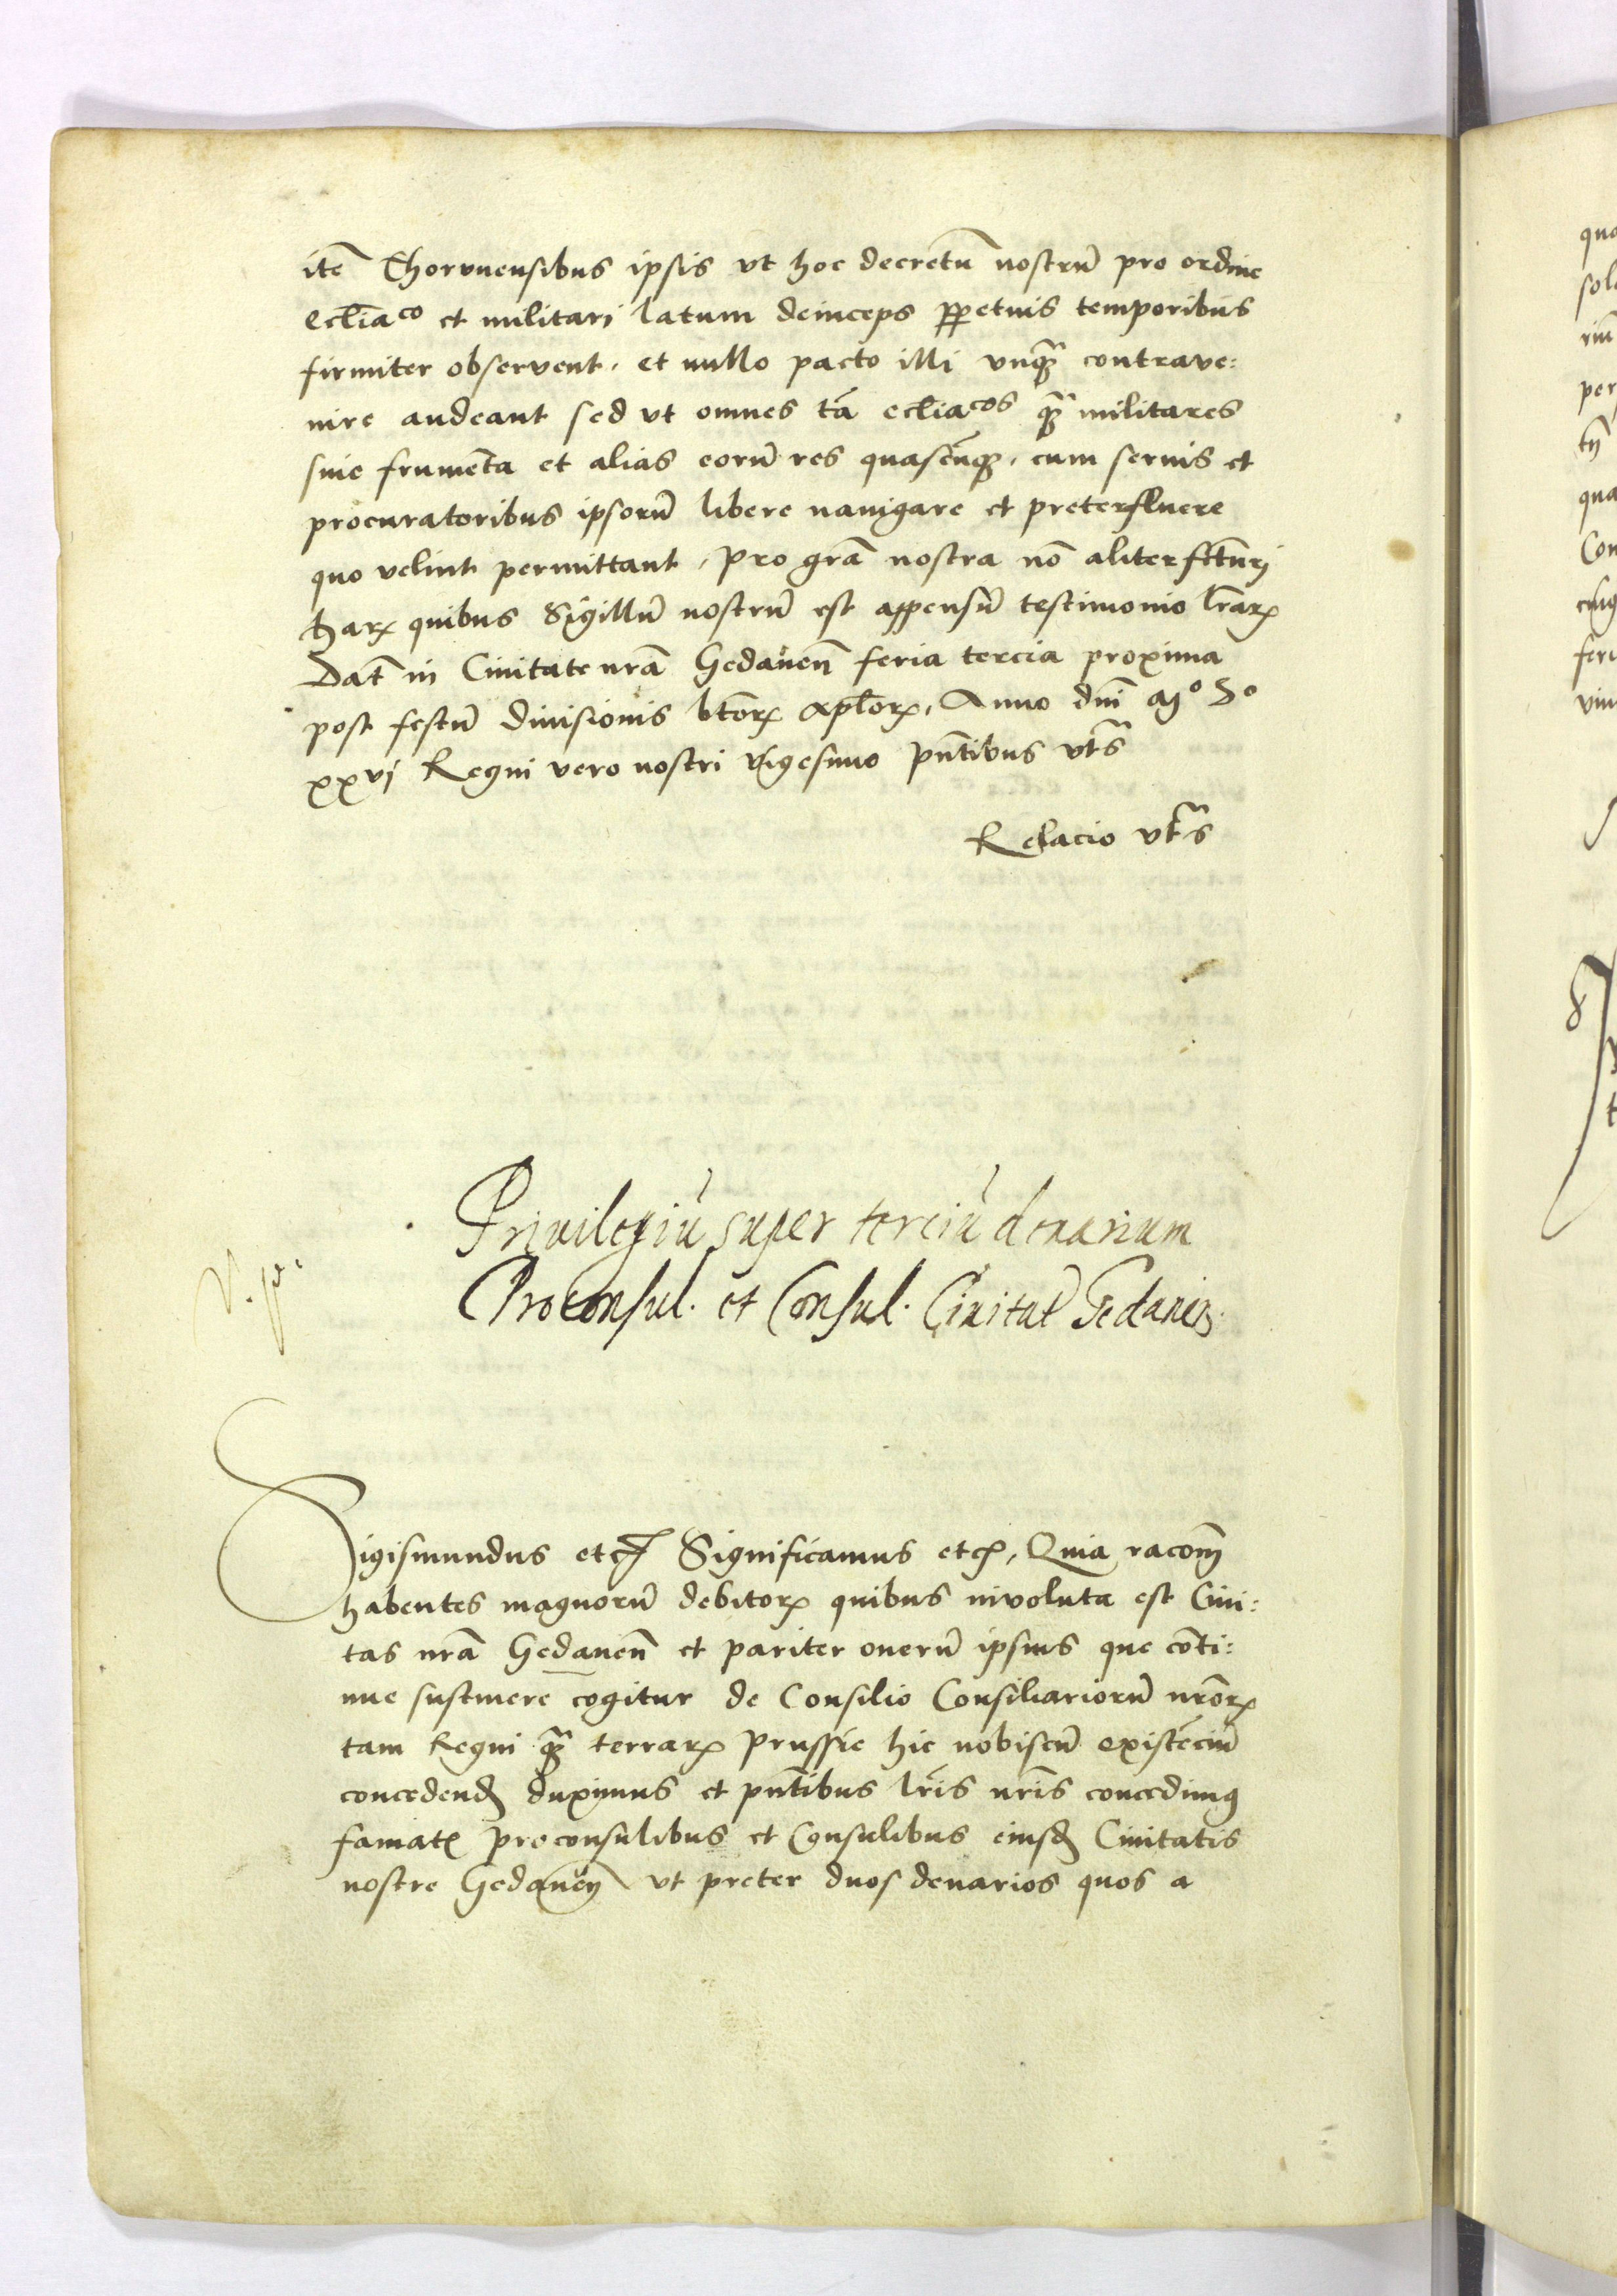 itē Thorunensibus ipsis vt hoc decretū nostrū pro ordine
eccliaco et militari latum deinceps ppetuis temporibus
firmiter observent. et nullo pacto illi vnq̃ contrave:
nire audeant sed vt omnes tā eccliacos q̃ militares
suie frumenta et alias eorū res quascūq̃, cum seruis et
procuratoribus ipsorū libere nauigare et preterfluere
quo velint permittant, pro grā nostra nō aliter fctūri
harꝝ quibus Sigillū nostrū est appensū testimonio lrarꝝ
Dat̄ in Ciuitate nrā Gedaneñ feria tercia proxima
post festū diuisionis btorꝝ aplorꝝ, Anno dnī Mo do
xxvj Regni vero nostri vigesimo pñtibus vts̄
Relacio vts̄
Priuilegiū super terciū denarium
Proconsul. et Consul. Ciuitat̄ Gedaneñ.
Sigismundus etcꝫ Significamus etcꝫ, Quia racom̄
habentes magnorū debitorꝝ quibus inuoluta est Ciui:
tas nrā Gedaneñ et pariter onerū ipsius que cōti:
nue sustinere cogitur de Consilio Consiliariorū nrorꝝ
tam Regni q̃ terrarꝝ prussie hic nobiscū existēciū
concedenđ duximus et pñtibus lris nris concedimꝰ
famatꝭ proconsulibus et Consulibus eiusđ Ciuitatis
nostre Gedaneñ vt preter duos denarios quos a